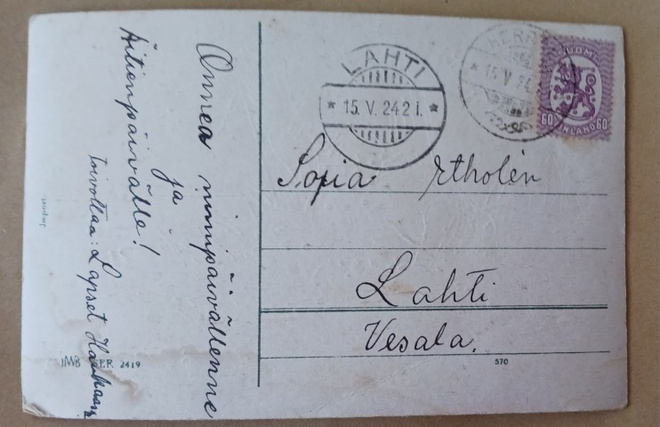 Onnea nimipäivällenne
ja
Äitienpäivälle!
Toivottaa: Lapset
LAHTI
* 15. V. 24 2 1. *
SUOMI
60 FINLAND 60
Sofia Etholén
Lahti
Vesala.
2419
570